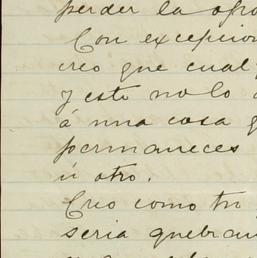 perder la apo
Con excepcion
creo que cual
y esto no lo
á una cosa
permaneces
ú otro.
Creo como tu
seria quebran